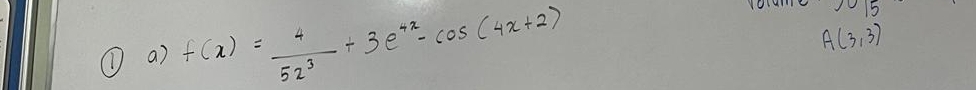 ① a) f(x) = 4/5x³ + 3e⁴ˣ - cos (4x+2)
A(3,3)